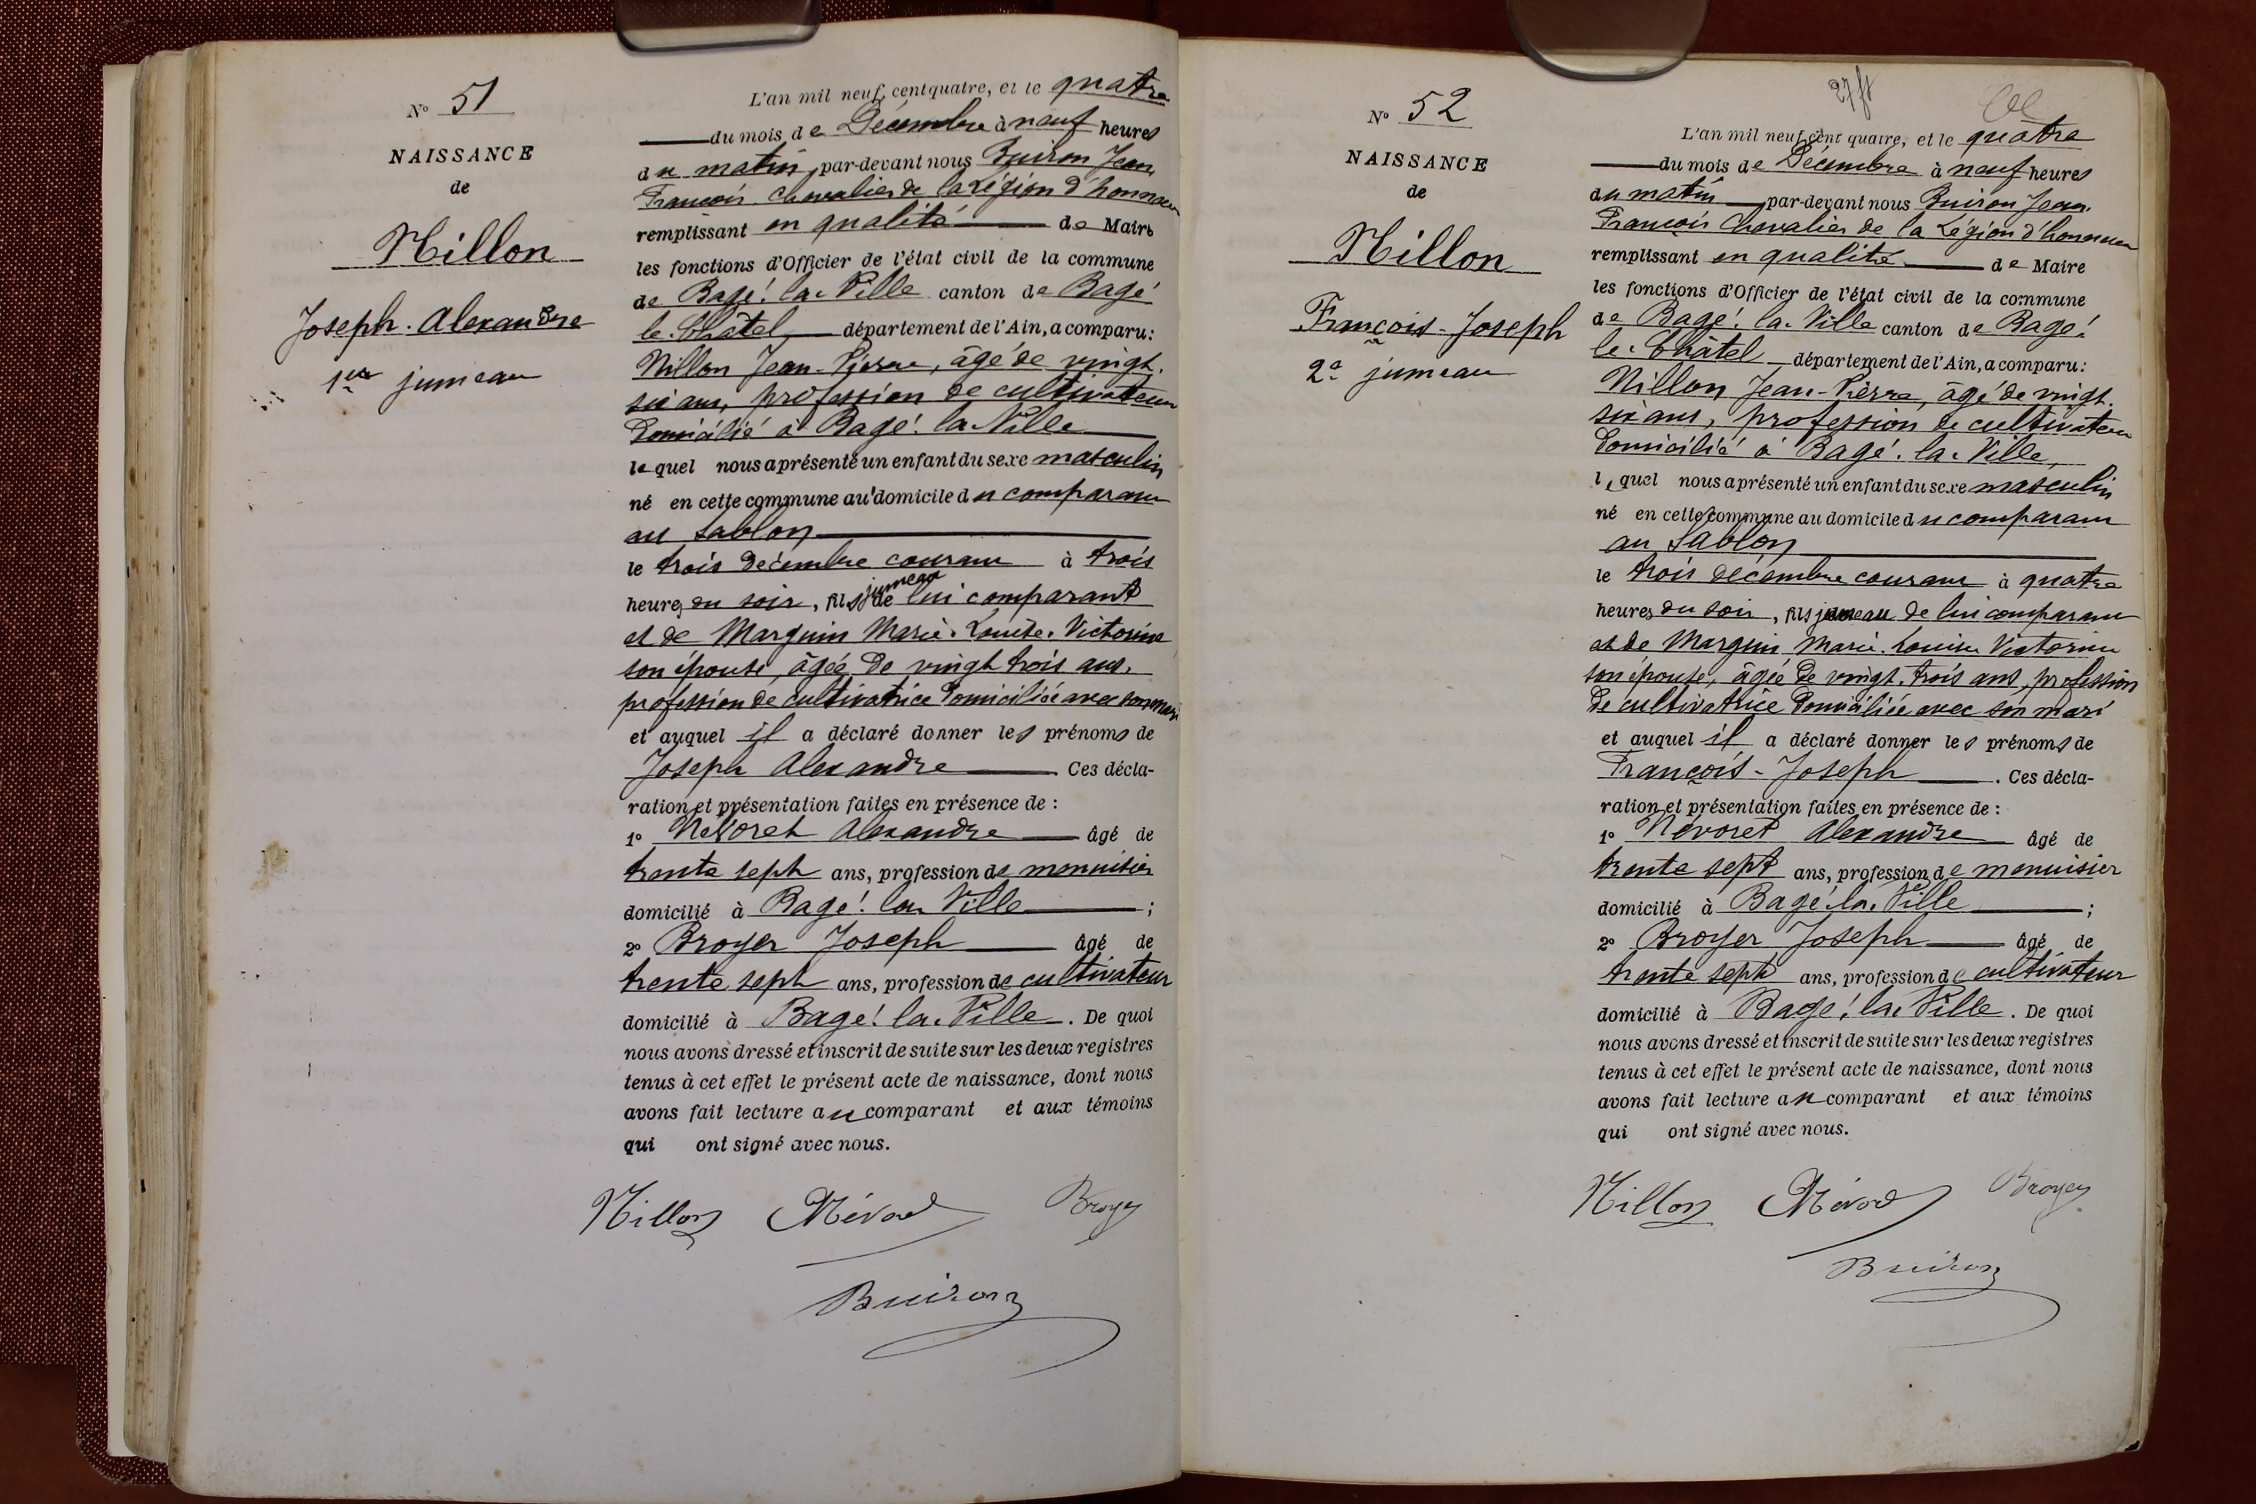 N° 51
NAISSANCE
de
Nillon
Joseph. Alexandre
1er jumeau
L'an mil neuf cent quatre, et le quatre
du mois de Décembre à neuf heures
du matin, par-devant nous Buiron Jean
François chevalier de la Légion d'honneur
remplissant en qualité de Maire
les fonctions d'Officier de l'état civil de la commune
de Bagé-la-Ville canton de Bagé
le-Châtel département de l'Ain, a comparu:
Nillon Jean-Pierre, âgé de vingt-
six ans, profession de cultivateur
domicilié à Bagé-la-Ville
lequel nous a présenté un enfant du sexe masculin
né en cette commune au domicile du comparant
au Sablon
le trois décembre courant à trois
heures du soir, fils jumeau de lui comparant
et de Marguin Marie-Louise-Victorine
son épouse, âgée de vingt trois ans,
profession de cultivatrice domiciliée avec son mari
et auquel il a déclaré donner les prénoms de
Joseph Alexandre Ces décla-
ration et présentation faites en présence de :
1° Névoret Alexandre âgé de
trente sept ans, profession de menuisier
domicilié à Bagé-la-Ville ;
2° Broyer Joseph âgé de
trente sept ans, profession de cultivateur
domicilié à Bagé-la-Ville. De quoi
nous avons dressé et inscrit de suite sur les deux registres
tenus à cet effet le présent acte de naissance, dont nous
avons fait lecture au comparant et aux témoins
qui ont signé avec nous.
Nillon Névoret Broyer
Buiron
27 ft
N° 52
NAISSANCE
de
Nillon
François-Joseph
2e jumeau
L'an mil neuf cent quatre, et le quatre
du mois de Décembre à neuf heures
du matin par-devant nous Buiron Jean
François Chevalier de la Légion d'honneur
remplissant en qualité de Maire
les fonctions d'Officier de l'état civil de la commune
de Bagé-la-Ville canton de Bagé-
le-Châtel département de l'Ain, a comparu:
Nillon Jean-Pierre, âgé de vingt-
six ans, profession de cultivateur
domicilié à Bagé-la-Ville,
lequel nous a présenté un enfant du sexe masculin
né en cette commune au domicile du comparant
au Sablon
le trois décembre courant à quatre
heures du soir, fils jumeau de lui comparant
et de Marguin Marie-Louise Victorine
son épouse, âgée de vingt-trois ans, profession
de cultivatrice domiciliée avec son mari
et auquel il a déclaré donner les prénoms de
François-Joseph. Ces décla-
ration et présentation faites en présence de :
1° Névoret Alexandre âgé de
trente sept ans, profession de menuisier
domicilié à Bagé-la-Ville ;
2° Broyer Joseph âgé de
trente sept ans, profession de cultivateur
domicilié à Bagé-la-Ville. De quoi
nous avons dressé et inscrit de suite sur les deux registres
tenus à cet effet le présent acte de naissance, dont nous
avons fait lecture au comparant et aux témoins
qui ont signé avec nous.
Nillon Névoret Broyer
Buiron